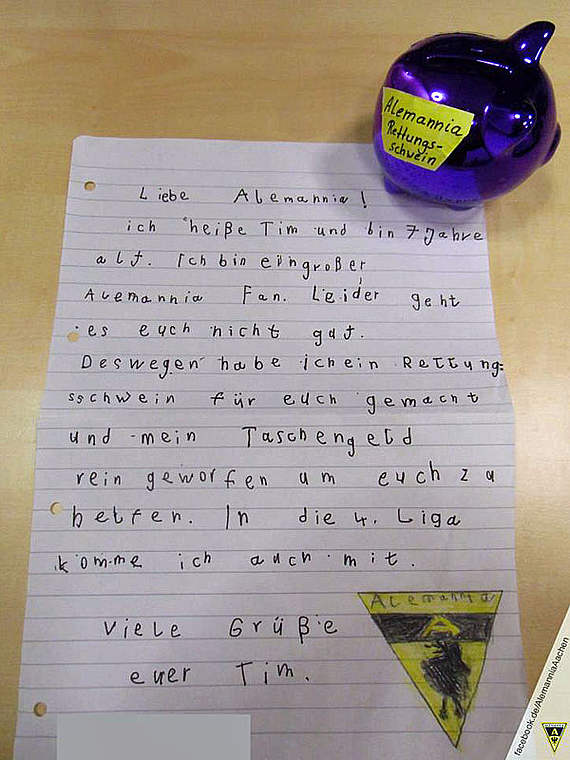 Alemannia
Rettungs-
schwein
Liebe Alemannia!
ich heiße Tim und bin 7 Jahre
alt. Ich bin ein großer
Alemannia Fan. Leider geht
es euch nicht gut.
Deswegen habe ich ein Rettung-
sschwein für euch gemacht
und mein Taschengeld
rein geworfen um euch zu
helfen. In die 4. Liga
komme ich auch mit.
Viele Grüße
euer Tim.
Alemannia
A
facebook.de/AlemanniaAachen